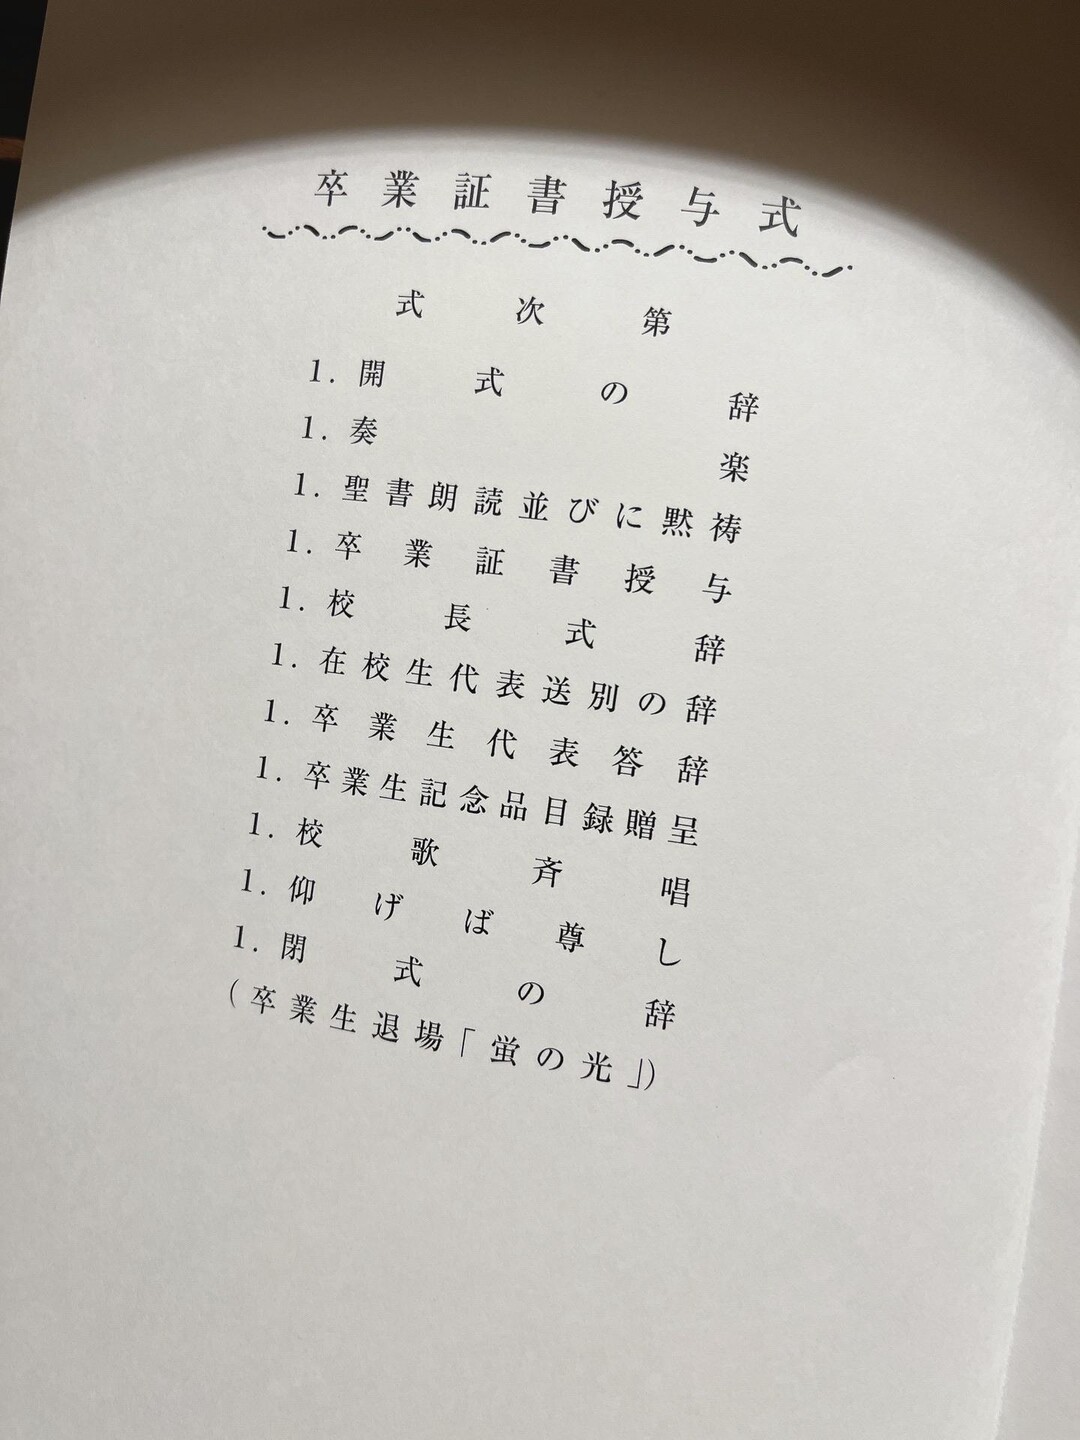 卒業証書授与式
式次第
1. 開式の辞
1. 奏楽
1. 聖書朗読並びに黙祷
1. 卒業証書授与
1. 校長式辞
1. 在校生代表送別の辞
1. 卒業生代表答辞
1. 卒業生記念品目録贈呈
1. 校歌斉唱
1. 仰げば尊し
1. 閉式の辞
(卒業生退場「蛍の光」)